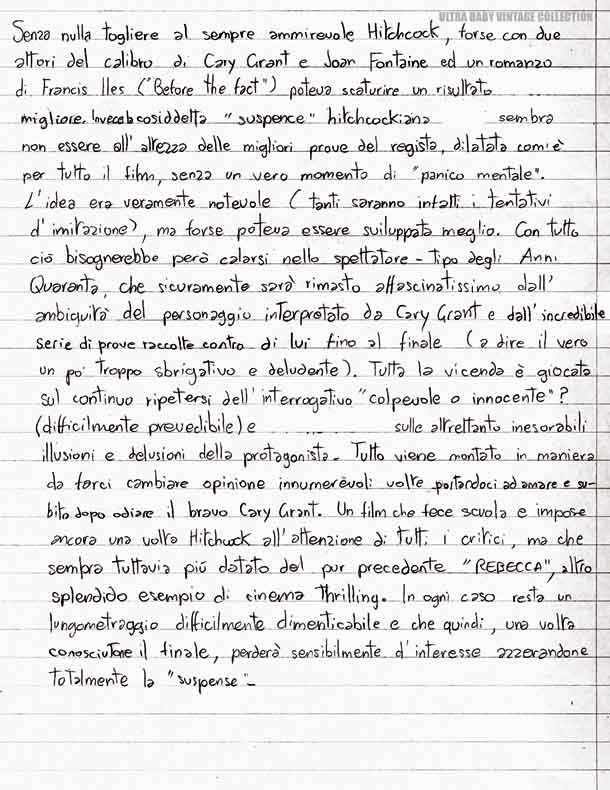 ULTRA BABY VINTAGE COLLECTION
Senza nulla togliere al sempre ammirevole Hitchcock, forse con due
attori del calibro di Cary Grant e Joan Fontaine ed un romanzo
di Francis Iles ("Before the fact") poteva scaturire un risultato
migliore. Invece la cosiddetta "suspence" hitchcockiana sembra
non essere all'altezza delle migliori prove del regista, dilatata com'è
per tutto il film, senza un vero momento di "panico mentale".
L'idea era veramente notevole (tanti saranno infatti i tentativi
d'imitazione), ma forse poteva essere sviluppata meglio. Con tutto
ciò bisognerebbe però calarsi nello spettatore-tipo degli Anni
Quaranta, che sicuramente sarà rimasto affascinatissimo dall'
ambiguità del personaggio interpretato da Cary Grant e dall'incredibile
serie di prove raccolte contro di lui fino al finale (a dire il vero
un po' troppo sbrigativo e deludente). Tutta la vicenda è giocata
sul continuo ripetersi dell'interrogativo "colpevole o innocente"?
(difficilmente prevedibile) e sulle altrettanto inesorabili
illusioni e delusioni della protagonista. Tutto viene montato in maniera
da farci cambiare opinione innumerevoli volte portandoci ad amare e su-
bito dopo odiare il bravo Cary Grant. Un film che fece scuola e impose
ancora una volta Hitchcock all'attenzione di tutti i critici, ma che
sembra tuttavia più datato del pur precedente "REBECCA", altro
splendido esempio di cinema thrilling. In ogni caso resta un
lungometraggio difficilmente dimenticabile e che quindi, una volta
conosciutone il finale, perderà sensibilmente d'interesse azzerandone
totalmente la "suspense"-